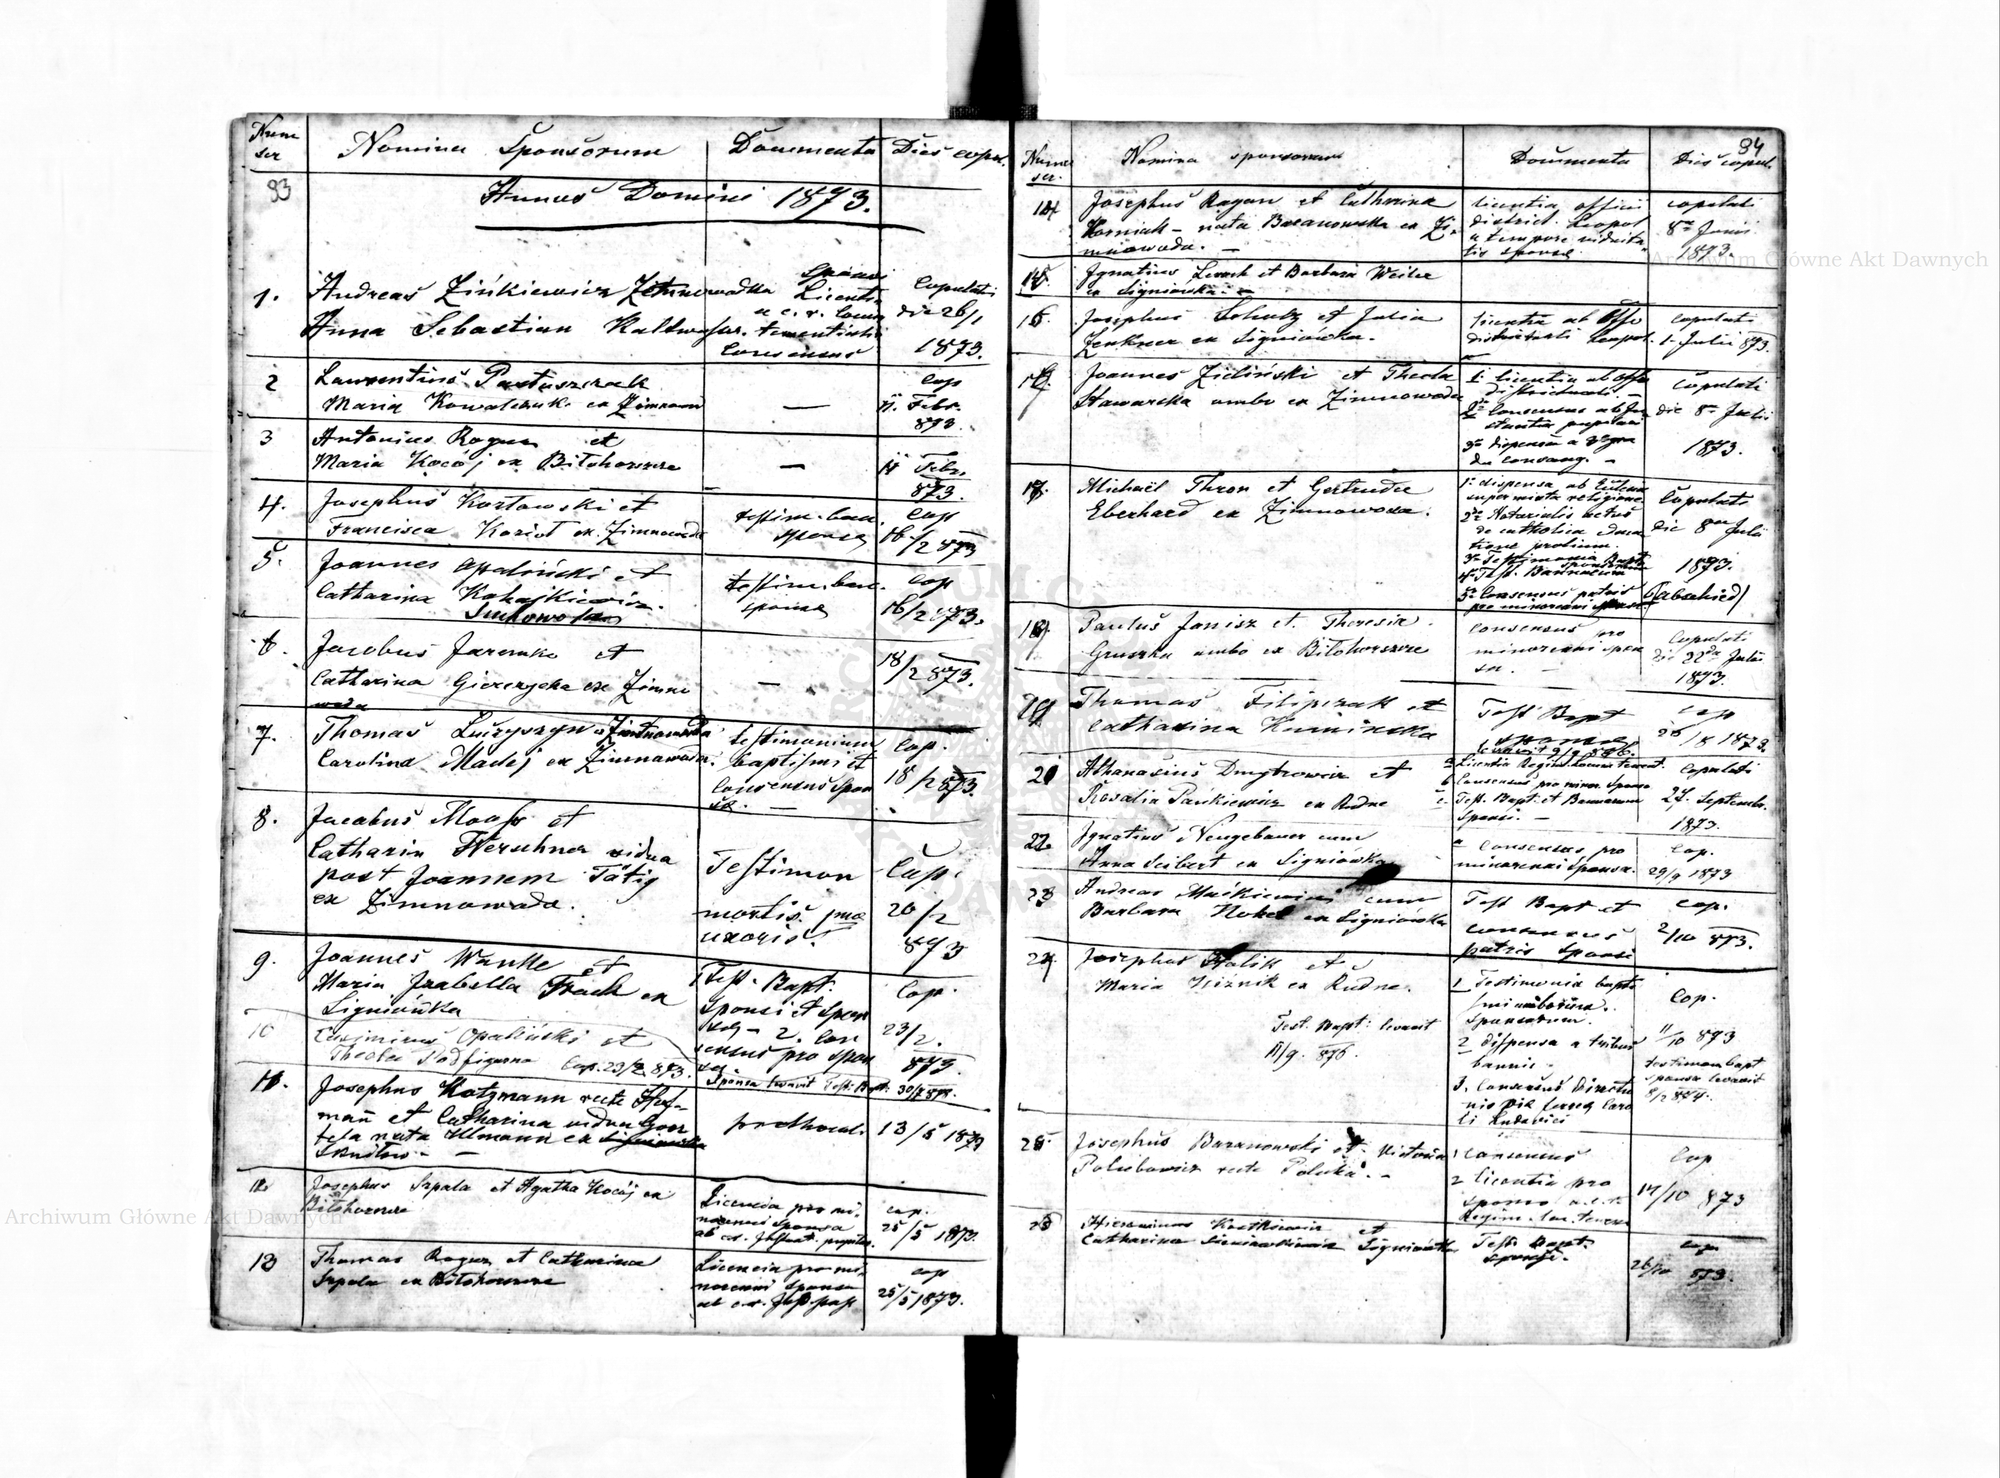 Num ser
Nomina Sponsorum
Documenta
Dies copul.
93
Annus Domini 1873.
1.
Andreas Zińkiewicz Zimnowodka
Anna Sebastian
Sponsi
Licentia
a c. r. Locum
tenentiali
Consensus
Copulati
die 26/1
1873.
2
Laurentius Partuszczak
Maria Kowalczuk ex Zimnowod
—
Cop
11. Febr.
873.
3
Antonius Rogun et
Maria Kocój ex Biłohorszcze
—
11 Febr.
873.
4.
Josephus Kozłowski et
Francisca Kozioł ex Zimnowoda
testim. ban.
sponsa
Cop
16/2 873
5.
Joannes Opaliński et
Catharina
testim. ban.
sponsa
Cop
16/2 873.
6.
Jacobus Jaremko et
Catharina Gierczycka ex Zimno
woda
—
18/2 873.
7.
Thomas
Carolina Madej ex Zimnawoda
testimonium
baptismi et
Consensus Spon
sae. —
Cop.
18/2 873.
8.
Jacobus Maass et
Catharin Herschner vidua
post Joannem Tätig
ex Zimnowoda.
Testimon
mortis
uxoris.
Cop.
20/2
873
9.
Joannes Wanke et
Maria Isabella Frach ex
Signiówka
Test. Bapt.
Sponsi et Spon
sae – 2. Con
sensus pro Spon
sa.
Cop.
23/2.
873.
10
Casimirus Opaliński et
Theolea Podfigurna Cop. 23/2 873.
Sponsa levavit Test. Bapt. 30/7 878.
11.
Josephus Katzmann recte Hof-
mañ et Catharina vidua
nata Ulmann ex
—
13/5 1873
12.
Josephus Szpala et Agatha Kocój ex
Biłohorszcze
Licencia pro mi-
norenni Sponsa
ab c.r. Instant. pupillar.
cop.
25/5 1873.
13
Thomas Rogun et Catharina
Szpala ex Biłohorszcze
Licencia pro mi-
norenni Sponsa
ab c.r. Inst. pup.
cop
25/5 1873.
Num ser.
Nomina sponsorum
Documenta
94
Dies copul.
14
Josephus Rogun et Catharina
Korniak – nata Baranowska ex Zi-
mnowoda. —
licentia officii
district. Leopol
a tempore viduita-
tis sponsae.
copulati
8a Junii
1873.
15.
Ignatius Lerach et Barbara Weiler
ex Signiówka. —
16
Josephus Schulz et Julia
Zenkner ex Signiówka.
licentia ab Offo
districtuali Leopol.
copulati
1. Julii 873.
17
Joannes Zieliński et Theola
Stawarska ambo ex Zimnowoda
1. licentia ab offo
districtuali. —
2. Consensus ab In
stantia pupillari
3. dispensa a 3 gra
du consang. —
Copulati
die 8. Julii
1873.
18.
Michaël Thron et Gertrudee
Eberhard ex Zimnowoda.
1. dispensa ab
super mixta religione
2. Notarialis actus
de catholica educa
tione prolium.
3. Testimonia Bapt.
sponsorum
4. Test. Bannorum
5. Consensus patris
pro minorenni sponsa
Copulati
die 8va Julii
1873.
19.
Paulus Janisz et Theresia
Gruszka ambo ex Biłohorszcze
Consensus pro
minorenni spon
sa. —
Copulati
die 22da Julii
1873.
20
Thomas Filipczak et
Catharina Kamińska
Test Bapt
sponsa
levavit 9/9 896.
cop
26/8 1873.
21
Athanasius Dmytrowicz et
Rosalia Pańkiewicz ex Rudno
a Licentia Regim. Locum tenent.
b Consensus pro minor. Sponsa
c. Test. Bapt. et Bannorum
Sponsi. —
Copulati
27. Septembr.
1873.
22.
Ignatius Neugebauer cum
Anna Seibert ex Signiówka
a Consensus pro
minorenni Sponsa.
Cop.
29/9 1873
23
Andreas Maśkiewicz cum
Barbara ex Signiówka
Test Bapt et
consensus
patris Sponsi
Cop.
2/10 873.
24.
Josephus Halik et
Maria Woźnik ex Rudno.
Test. Bapt. levavit
11/9. 876.
1 Testimonia bapti
smi
Sponsorum.
2 dispensa a tribus
bannis –
3. Consensus Directio
nis viae ferreae Caro
li Ludovici
Cop.
11/10 873
testimon bapt
sponsa levavit
8/2 874.
25.
Josephus Baranowski et Victoria
Polubowicz recte
1 Consensus
2 licentia pro
sponso a c. r.
Regim. Loc. tenen
Cop
17/10 873
26
Hieronimus et
Catharina Signiówka
Test. Bapt.
Sponsi.
Cop.
26/10 873.
Archiwum Główne Akt Dawnych
Archiwum Główne Akt Dawnych